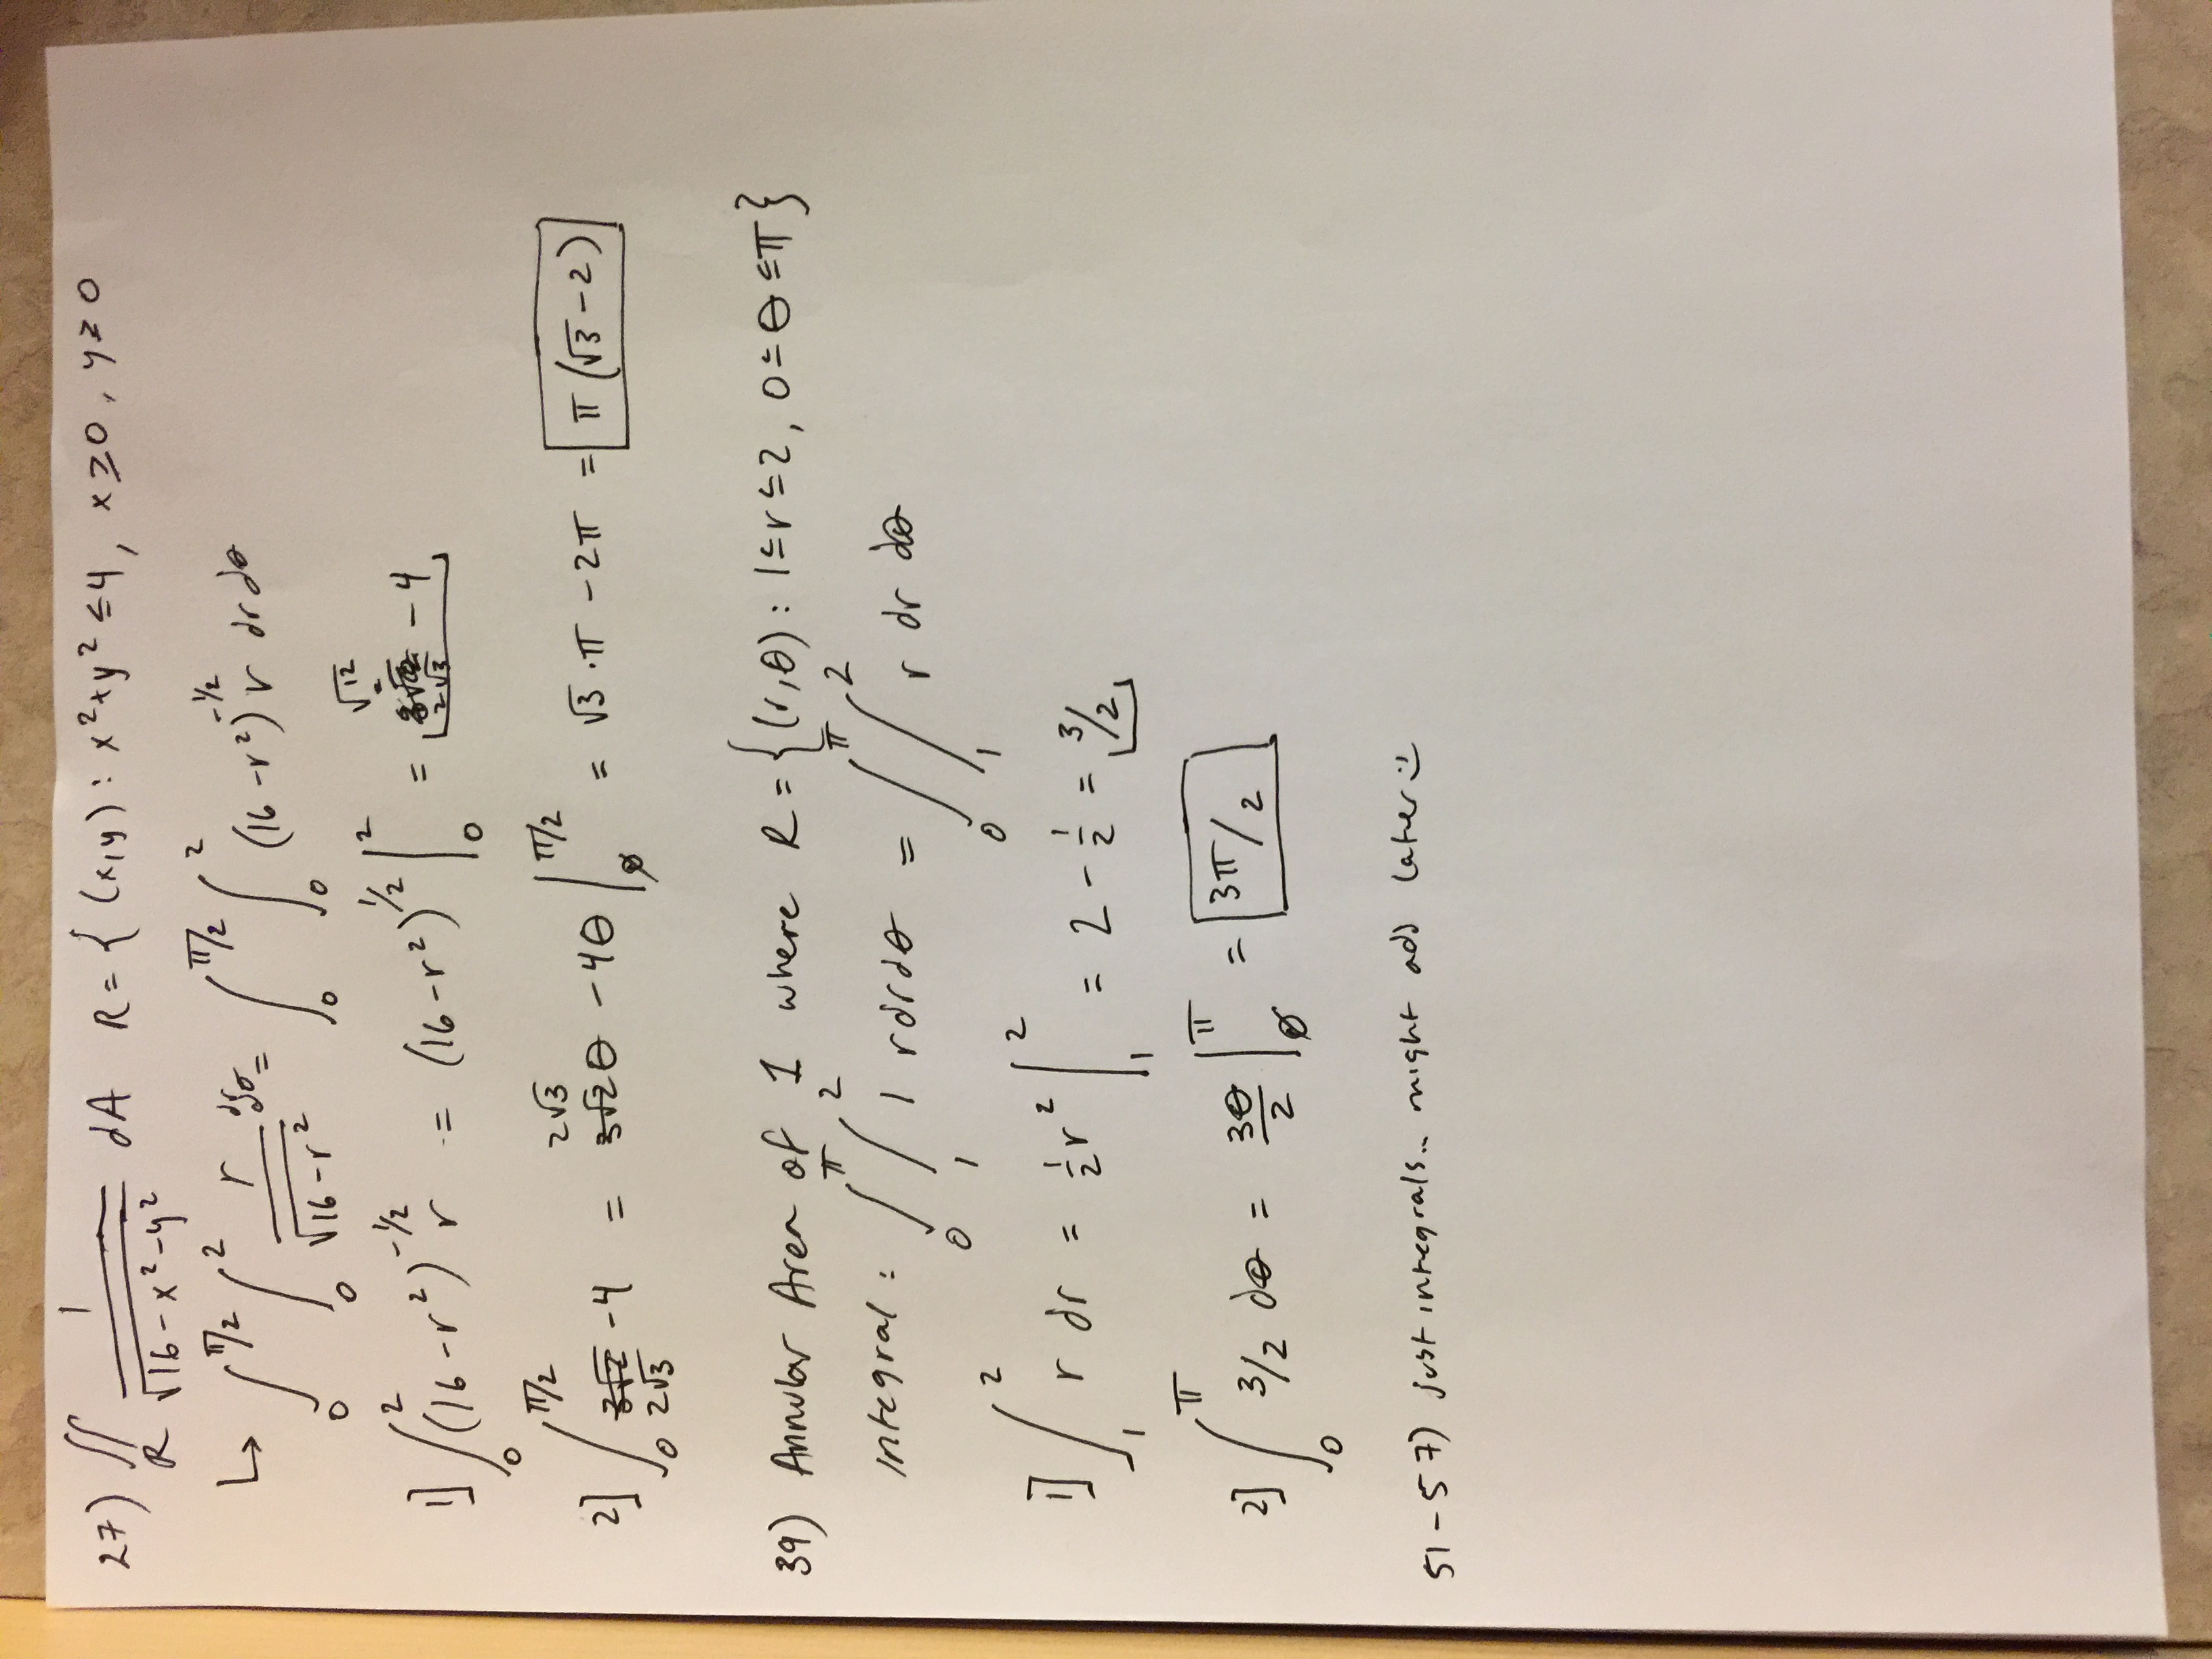 27) ∬_R 1/√(16-x²-y²) dA R = { (x,y) : x²+y² ≤ 4, x ≥ 0, y ≥ 0
↳ ∫_0^{π/2} ∫_0^2 r/√(16-r²) drdθ = ∫_0^{π/2} ∫_0^2 (16-r²)^{-1/2} r dr dθ
1] ∫_0^2 (16-r²)^{-1/2} r = (16-r²)^{1/2} |_0^2 = √12 2√3 - 4
2] ∫_0^{π/2} 3√2 2√3 - 4 = 2√3 3√2 θ - 4θ |_0^{π/2} = √3·π - 2π = π(√3-2)
39) Annular Area of 1 where R = {(r,θ) : 1≤r≤2, 0≤θ≤π}
integral : ∫_0^π ∫_1^2 1 rdrdθ = ∫_0^π ∫_1^2 r dr dθ
1] ∫_1^2 r dr = 1/2 r² |_1^2 = 2 - 1/2 = 3/2
2] ∫_0^π 3/2 dθ = 3θ/2 |_0^π = 3π/2
51-57) just integrals.. might add later :)